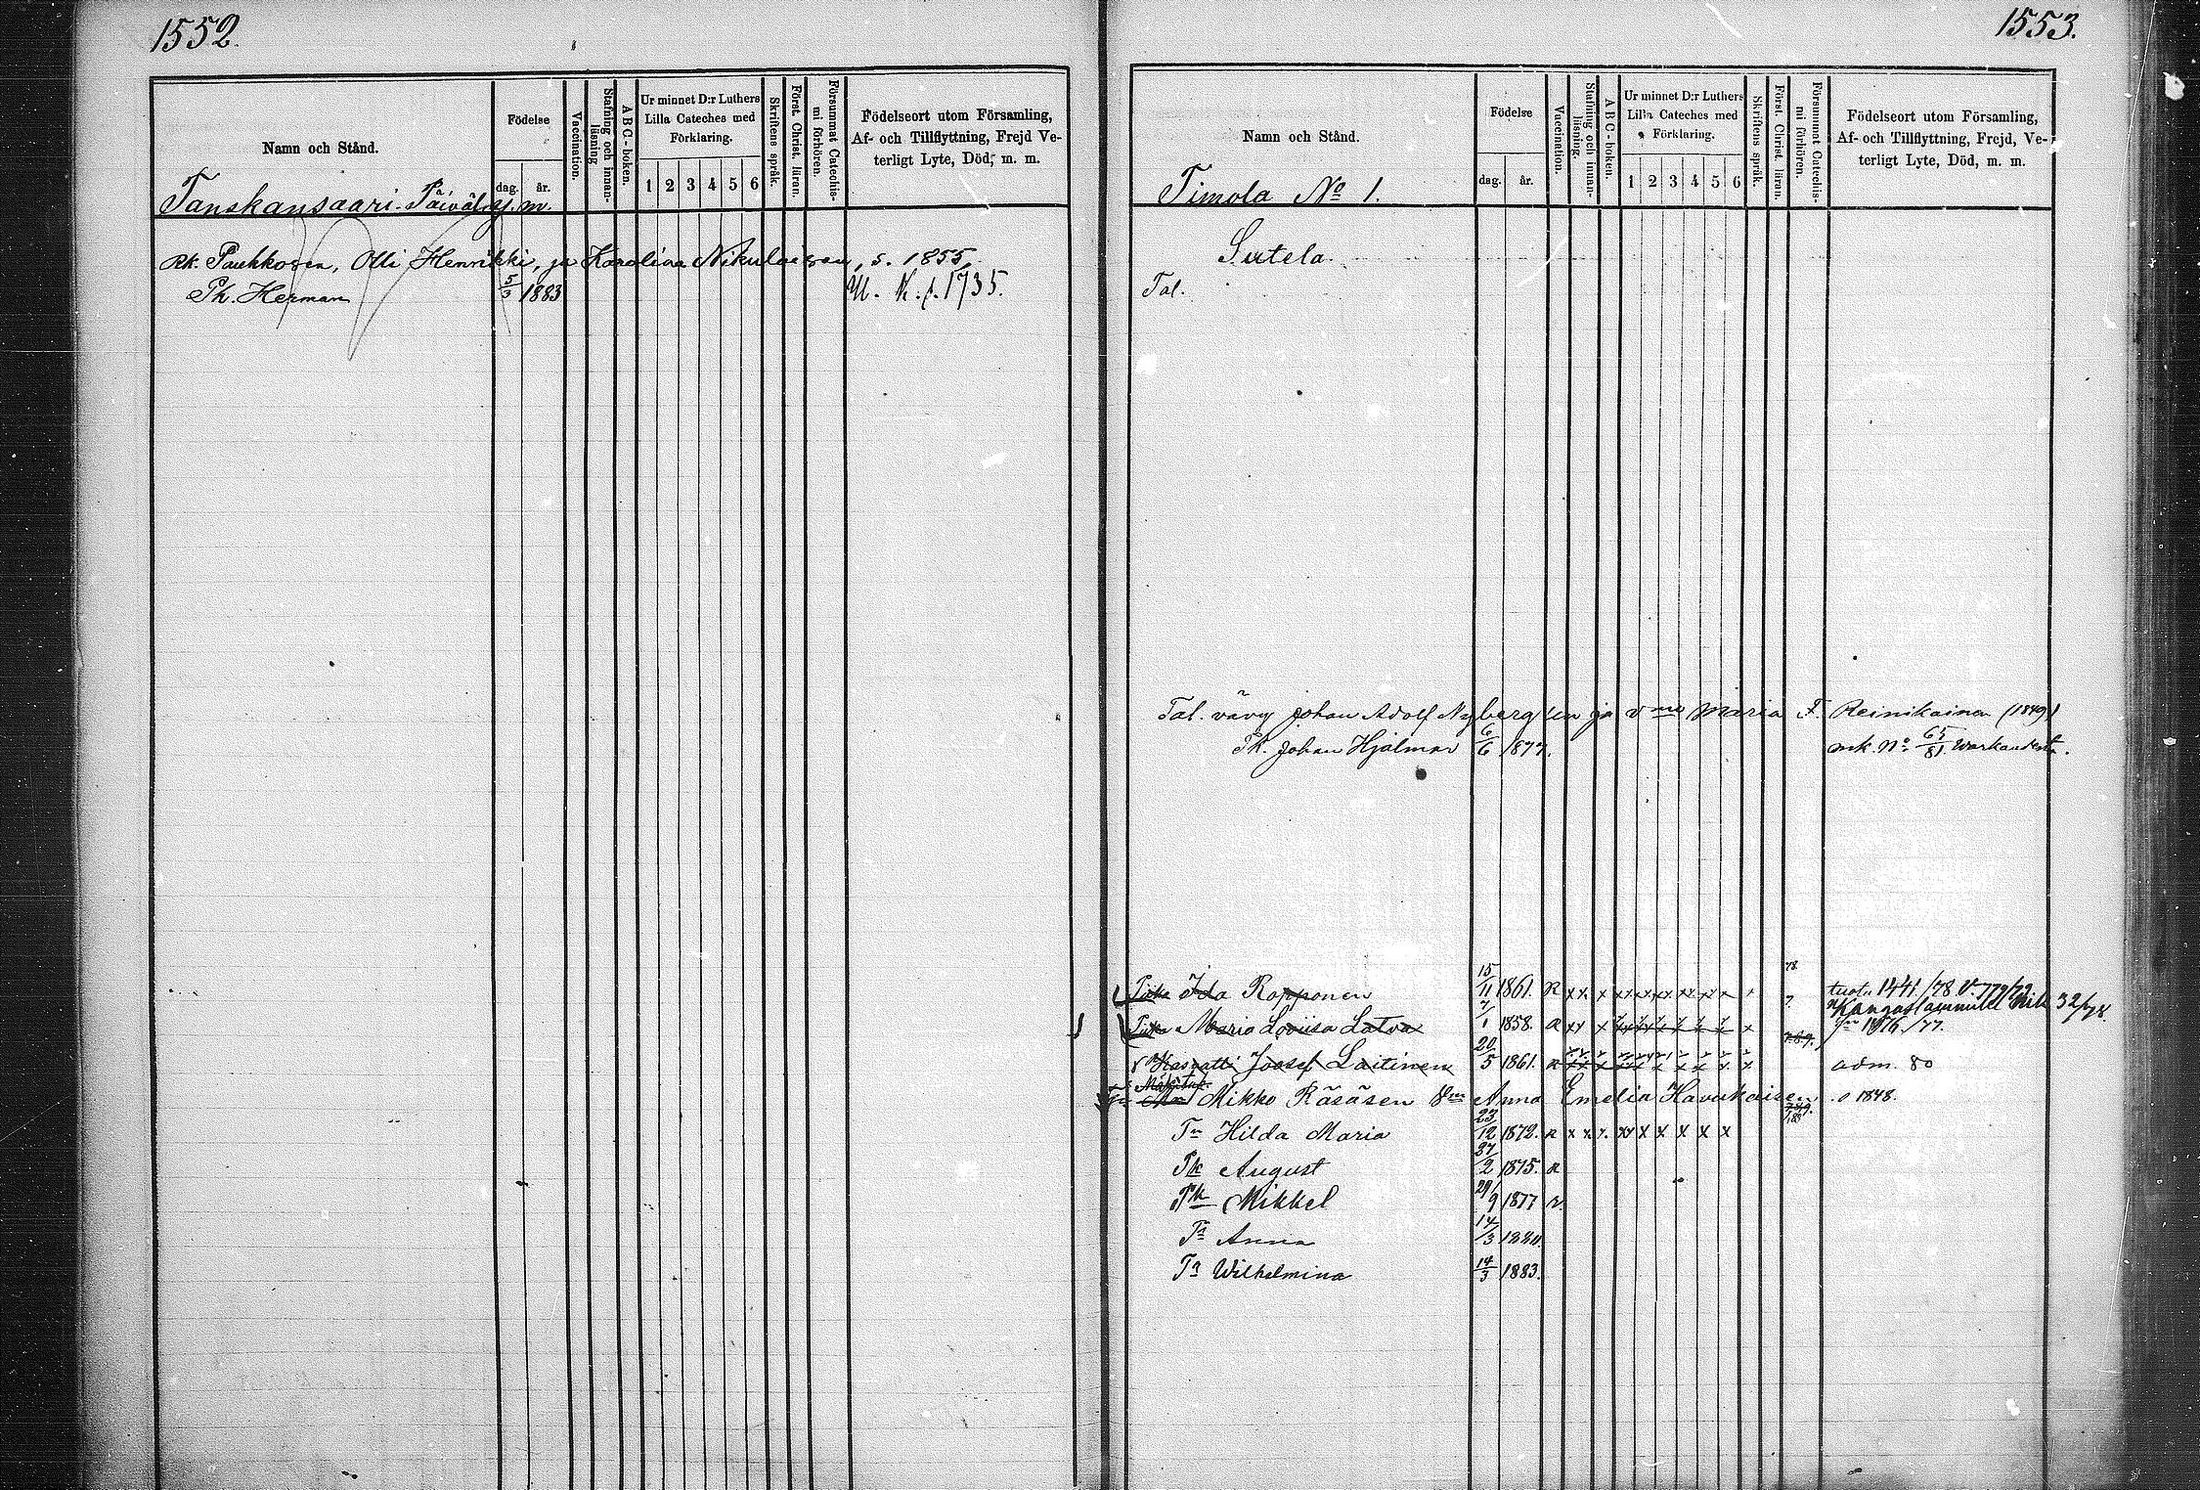 1552.
Namn och Stånd.
Födelse
dag. år.
Vaccination.
Stafning och innan-läsning
ABC-boken.
Ur minnet D:r Luthers
Lilla Cateches med
Förklaring.
1 2 3 4 5 6
Skriftens språk.
Först. Christ. läran.
Försummat Catechis-mi förhören.
Födelseort utom Församling,
Af- och Tillflyttning, Frejd Ve-
terligt Lyte, Död, m. m.
Tanskansaari. Päiväl. y. m.
Rk. Paukkosen, Olli Henrikki, ja Karolina Nikulaisen, s. 1855,
Pk. Herman 5/3 1883 M. K. s. 1735.
1553.
Namn och Stånd.
Födelse
dag. år.
Vaccination.
Stafning och innan-läsning.
ABC-boken.
Ur minnet D:r Luthers
Lilla Cateches med
Förklaring.
1 2 3 4 5 6
Skriftens språk.
Först. Christ. läran.
Försummat Catechis-mi förhören.
Födelseort utom Församling,
Af- och Tillflyttning, Frejd, Ve-
terligt Lyte, Död, m. m.
Timola No 1.
Sutela
Tal.
Tal. vävy Johan Adolf Nyberg'in ja vmo Maria F. Reinikainen (1849)
Pk. Johan Hjalmar 6/6 1877. mk. No 65/81 Warkaudesta.
Ida Ropponen 15/11 1861. R x x x 78 1441/78
Maria Lovisa Latva 7/1 1858. R x x x 7. 1876/77.
Kasvatti Josef Laitinen 20/5 1861. R 7.8.9. adm. 80
Mikko Räsäsen Anna Emelia Havukaisen o 1848.
Tr Hilda Maria 23/12 1872. R x x x x x x x x x
Pk August 27/2 1875. R
Pk Mikkel 29/9 1877 R.
Tr Anna 14/3 1880.
Tr Wilhelmina 14/3 1883.